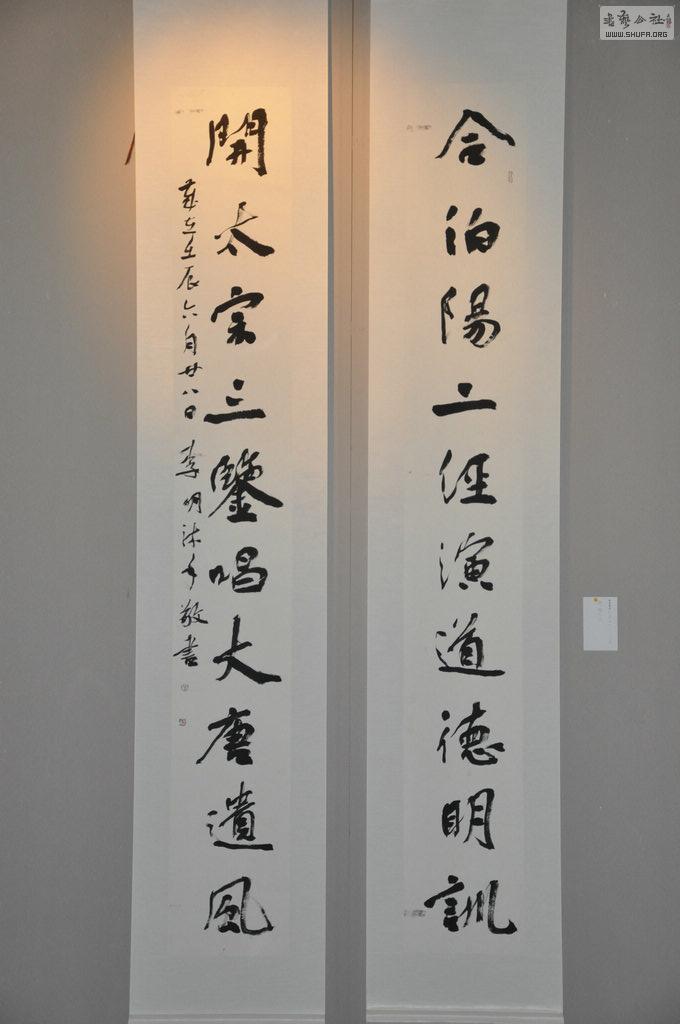 合伯陽二經演道德明訓
開太宗三鑒唱大唐遺風
歲在壬辰六月廿八日 李明 敬書
書藝公社
WWW.SHUFA.ORG